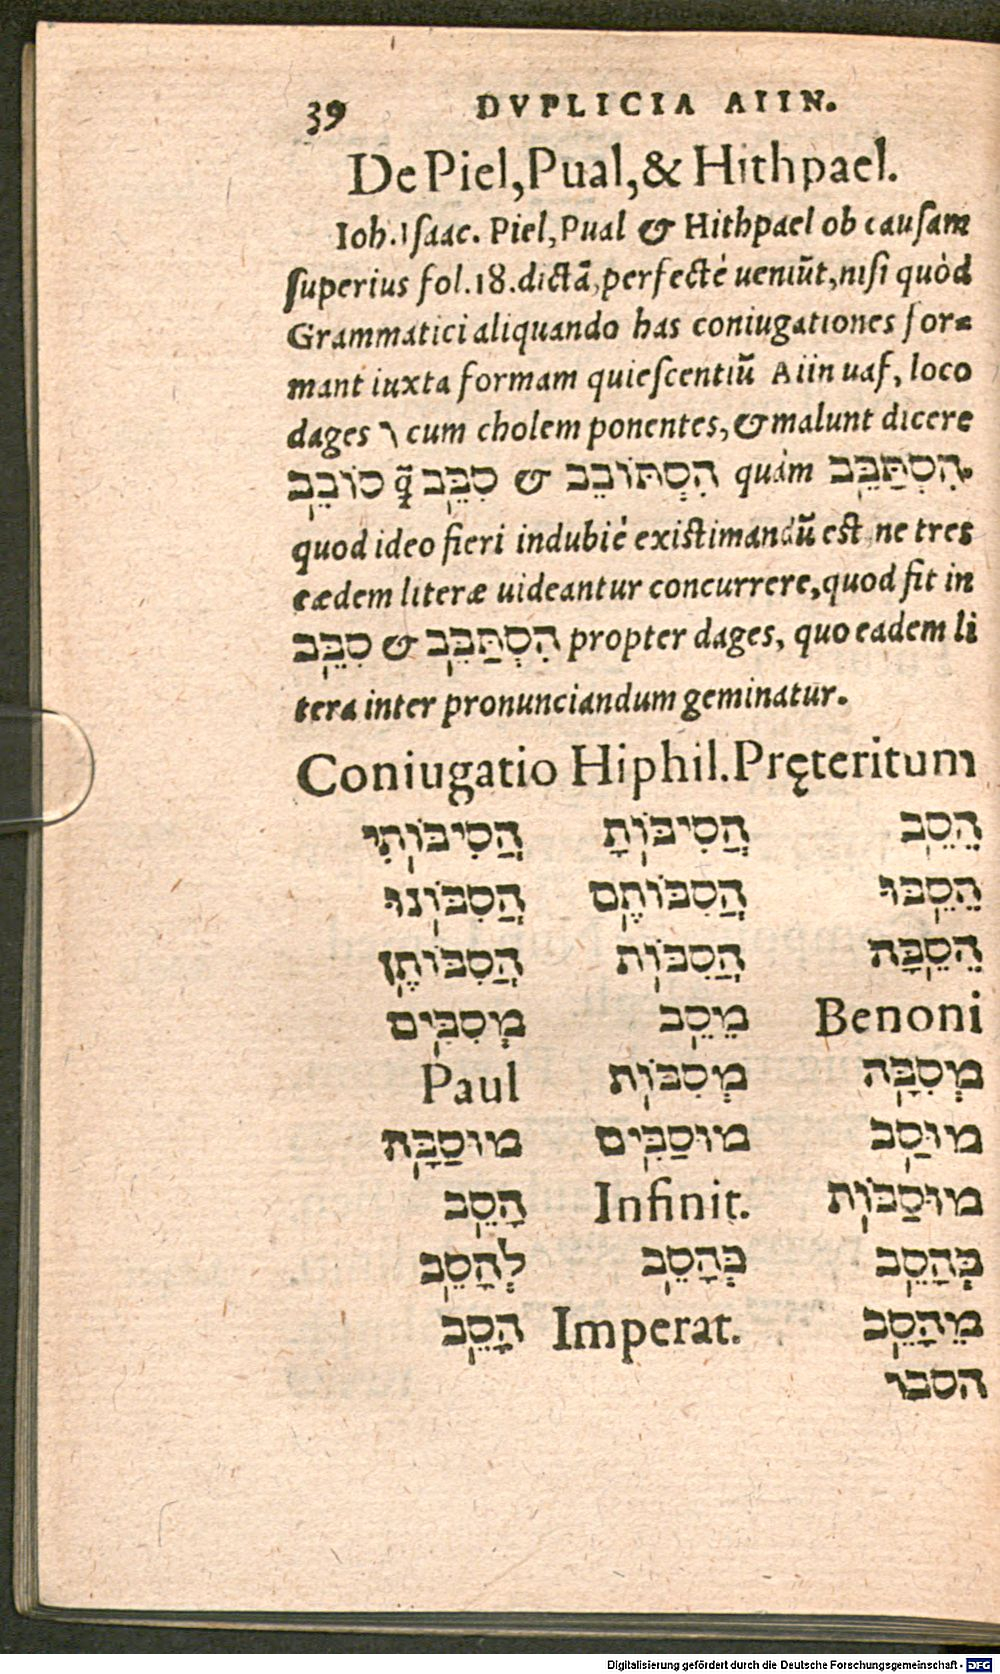 39 DVPLICIA AIIN.
De Piel, Pual, & Hithpael.
Ioh. Isaac. Piel, Pual & Hithpael ob causam
superius fol.18.dictã, perfectè ueniũt, nisi quòd
Grammatici aliquando has coniugationes for=
mant iuxta formam quiescentiũ Aiin uaf, loco
dages ו cum cholem ponentes, & malunt dicere
הִסְתַּבֵּב quàm הִסְתּוֹבֵב & סִבֵּב q̃ סוֹבֵב
quod ideo fieri indubiè existimandũ est, ne tres
eædem literæ uideantur concurrere, quod fit in
הִסְתַּבֵּב & סִבֵּב propter dages, quo eadem li
tera inter pronunciandum geminatur.
Coniugatio Hiphil. Pręteritum
הֵסֵב הֲסִיבּוֹתָ הֲסִיבּוֹתִי
הֵסֵבּוּ הֲסִבּוֹתֶם הֲסִבּוֹנוּ
הֵסֵבָּה הֲסִבּוֹת הֲסִבּוֹתֶן
Benoni מֵסֵב מְסִבִּים
מְסִבָּה מְסִבּוֹת Paul
מוּסַב מוּסַבִּים מוּסַבָּה
מוּסַבּוֹת Infinit. הָסֵב
בְּהָסֵב כְּהָסֵב לְהָסֵב
מֵהָסֵב Imperat. הָסֵב
הסבו
Digitalisierung gefördert durch die Deutsche Forschungsgemeinschaft - DFG